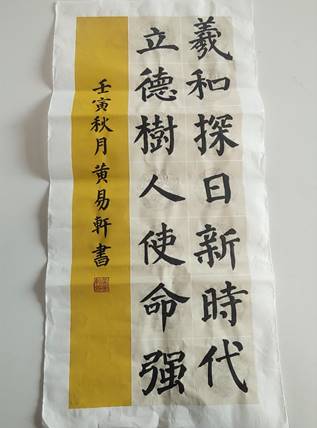 羲和探日新時代
立德樹人使命强
壬寅秋月黄易軒書